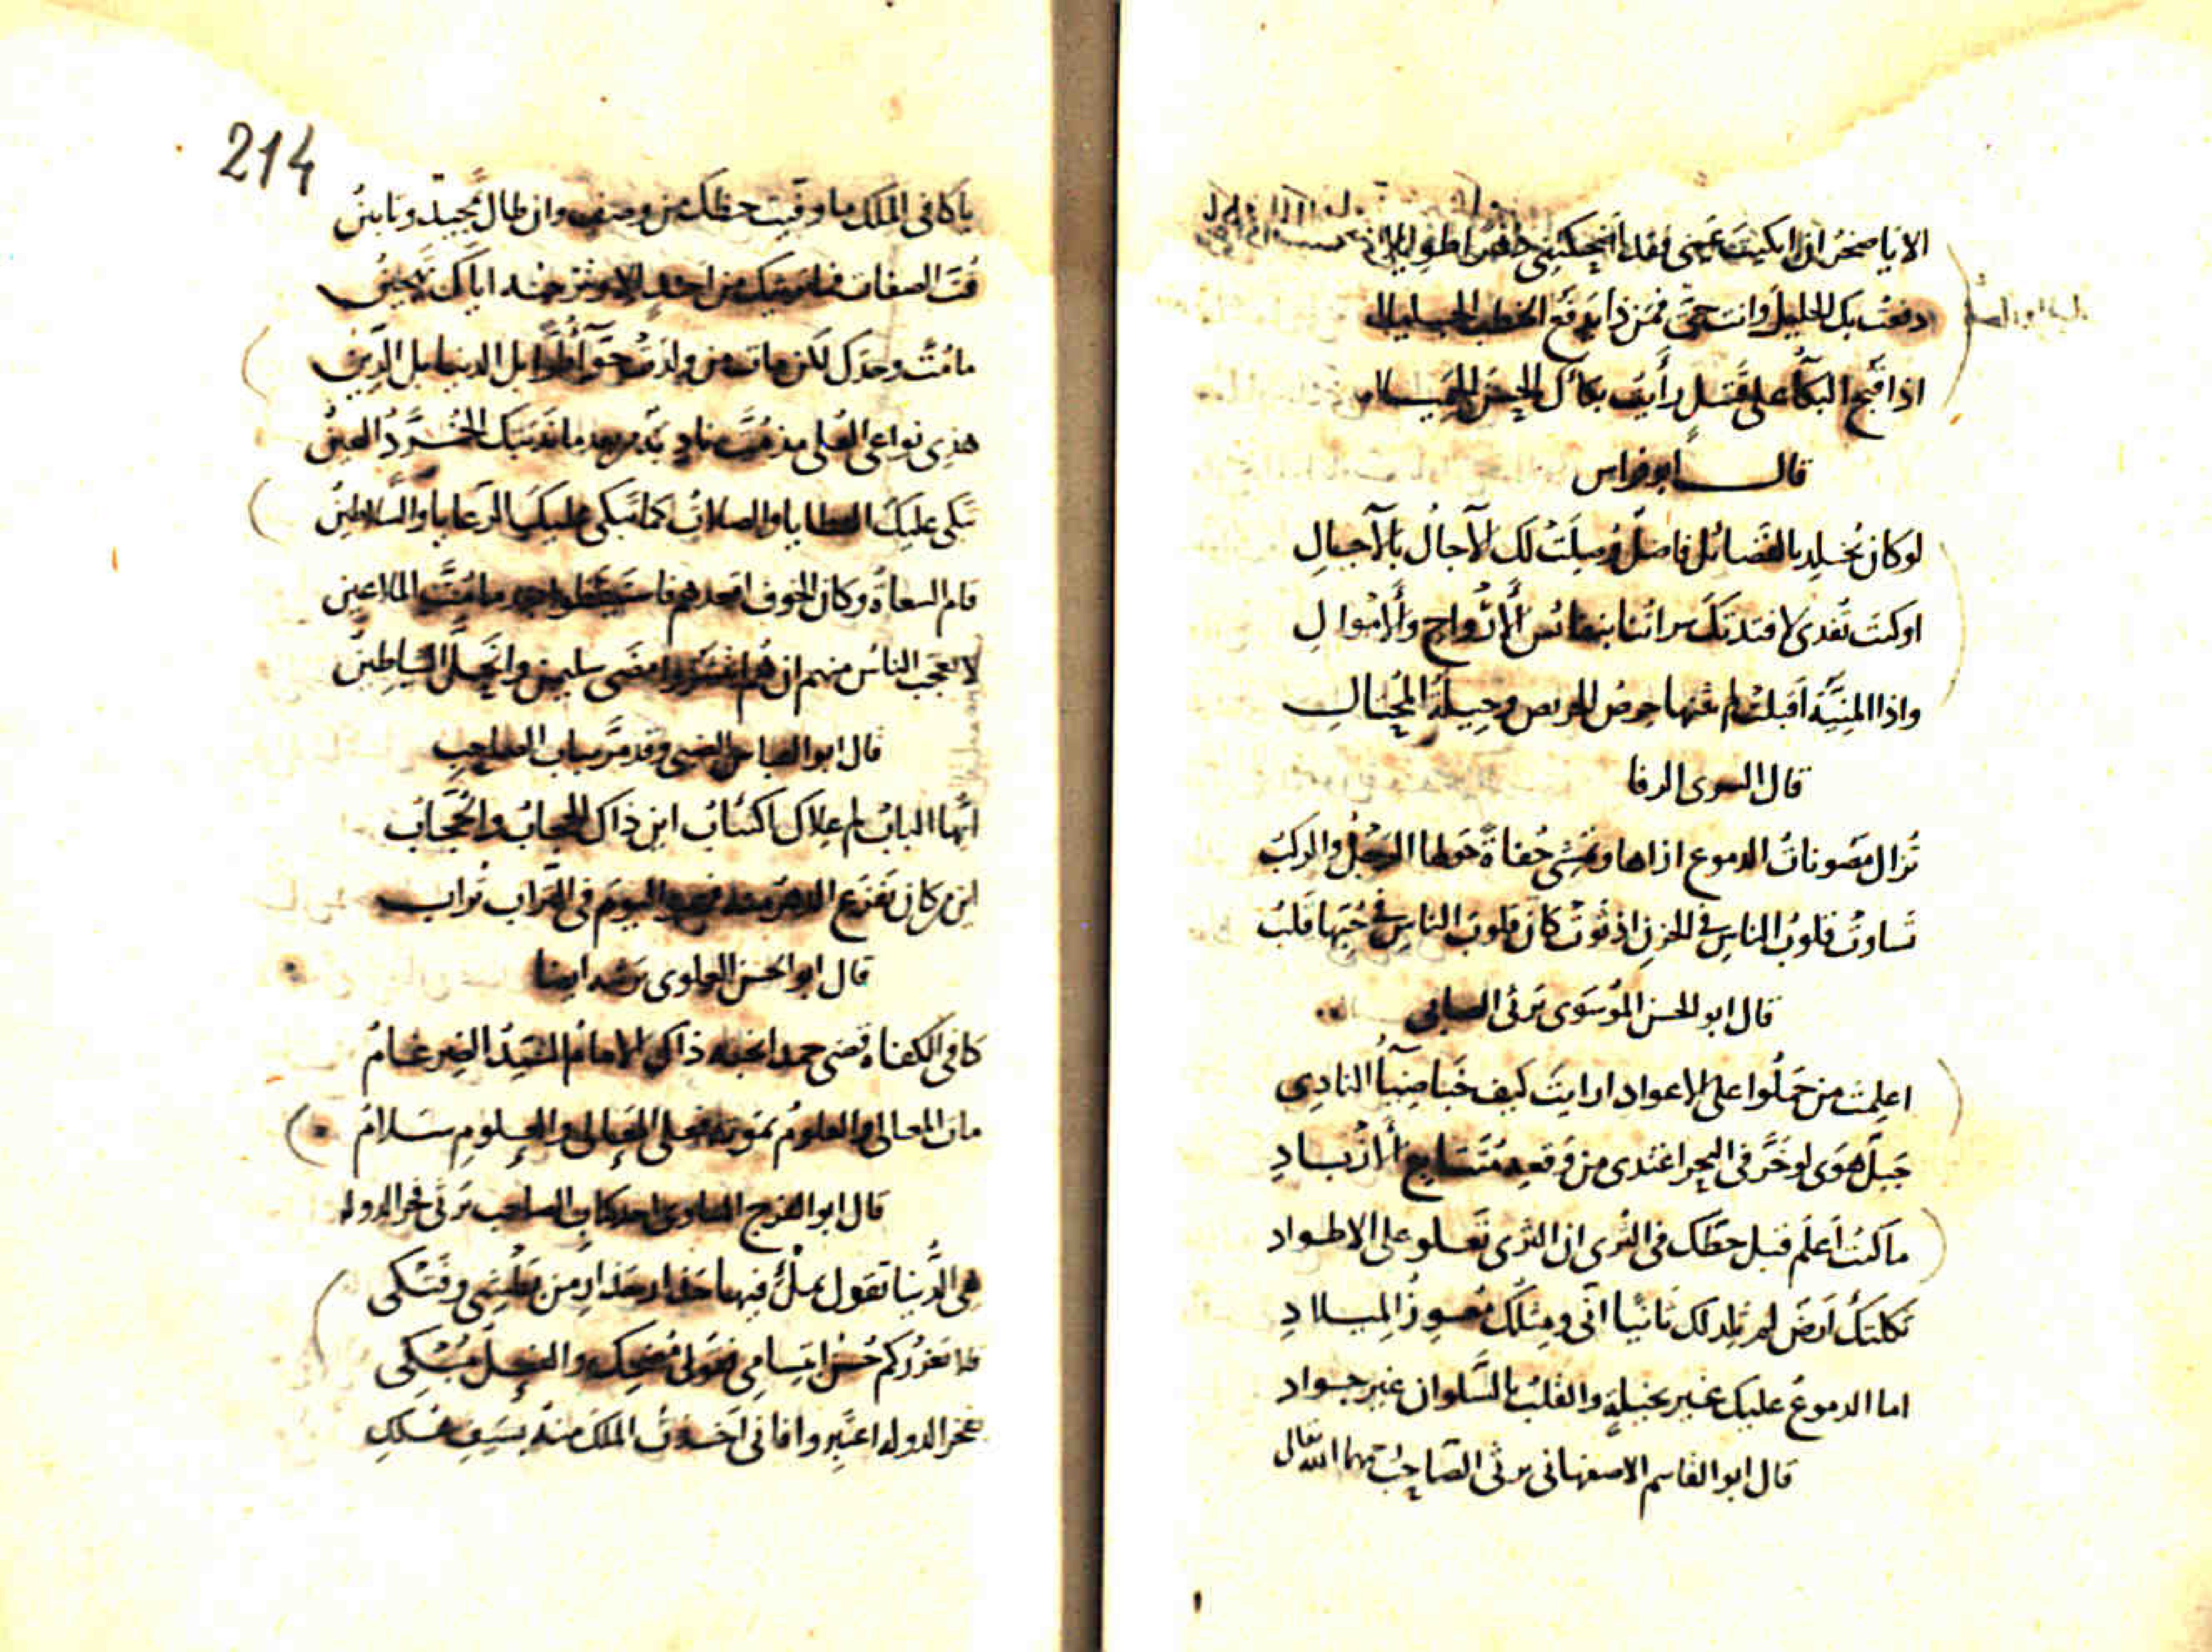 الا يا صخر ان ابكيت عيني فقد اضحكتني
دفعت بك الجليل وانت حي فمن ذا يدفع الخطب الجليلا
اذا قبح البكآء على قتيل رأيت بكاءك الحسن الجميلا
قال ابو فراس
لو كان يُخلد بالفضائل فاضل وُصلت لك الآجال بالآجال
او كنت تُفدى لافتدتك سراتنا بنفائس الأرواح والأموال
واذا المنيَّة اقبلت لم يثنها حرص الحريص وحيلة المحتال
قال السرى الرفا
تُزال مصونات الدموع ازاها وتمشى حُفاةً حولها الرَّجل والركبُ
تساوت قلوب الناس في الحزن اذ ثوت كأن قلوب الناس في حبها قلبُ
قال ابو الحسن الموسوى يرثى الصابى
اعلمت من حملوا على الاعواد ارايت كيف خبا ضيآء النادى
جبل هوى لو خرَّ في البحر اغتدى من وقعه متتابع الازباد
ما كنت اعلم قبل حطك في الثرى ان الثرى تعلو على الاطواد
ثكلتك ارض لم تلد لك ثانيا انّى ومثلك معوز الميلاد
اما الدموع عليك غير بخيلة والقلب بالسلوان غير جواد
قال ابو القاسم الاصفهانى يرثى الصاحب
214
يا كافى الملك ما وفّيت حظك من وصف وان طال تمجيد وتابين
فُتَّ الصفات فما يرثيك من احد الا وتزيينه اياك تهجين
ما مُتَّ وحدك لكن مات من ولدت حوّآء طُرّا بل الدنيا بل الدين
هذى نواعى العلى مذ مُتَّ نادبة من بعد ما ندبتك الخُرَّد العين
تبكى عليك العطايا والصلات كما تبكى عليك الرعايا والسلاطين
قام السعاة وكان الخوف اقعدهم فاستيقظوا بعد ما مُتَّ الملاعين
لا يعجب الناس منهم ان هُم انتشروا مضى سليمن وانحلَّ الشياطين
قال ابو العباس الضبى وقد مرّ بباب الصاحب
ايها الباب لم علاك اكتئاب اين ذاك الحجاب والحُجّاب
اين من كان يفزع الدهر منه فهو اليوم في التراب تراب
قال ابو الحسن العلوى يرثيه ايضا
كافى الكفاة قضى حميدا نحبه ذاك الامام السيّد الضرغام
مات المعالى والعلوم بموته فعلى المعالى والعلوم سلام
قال ابو الفرج الساوى احد كتاب الصاحب يرثى فخر الدوله
هى الدُّنيا تقول بملء فيها حذار حذار من بطشى وفتكى
فلا تغرركم حُسن ابتسامى فقولى مضحك والفعل مُبكى
بفخر الدوله اعتبروا فانى اخذت الملك منه بسيف هُلكِ